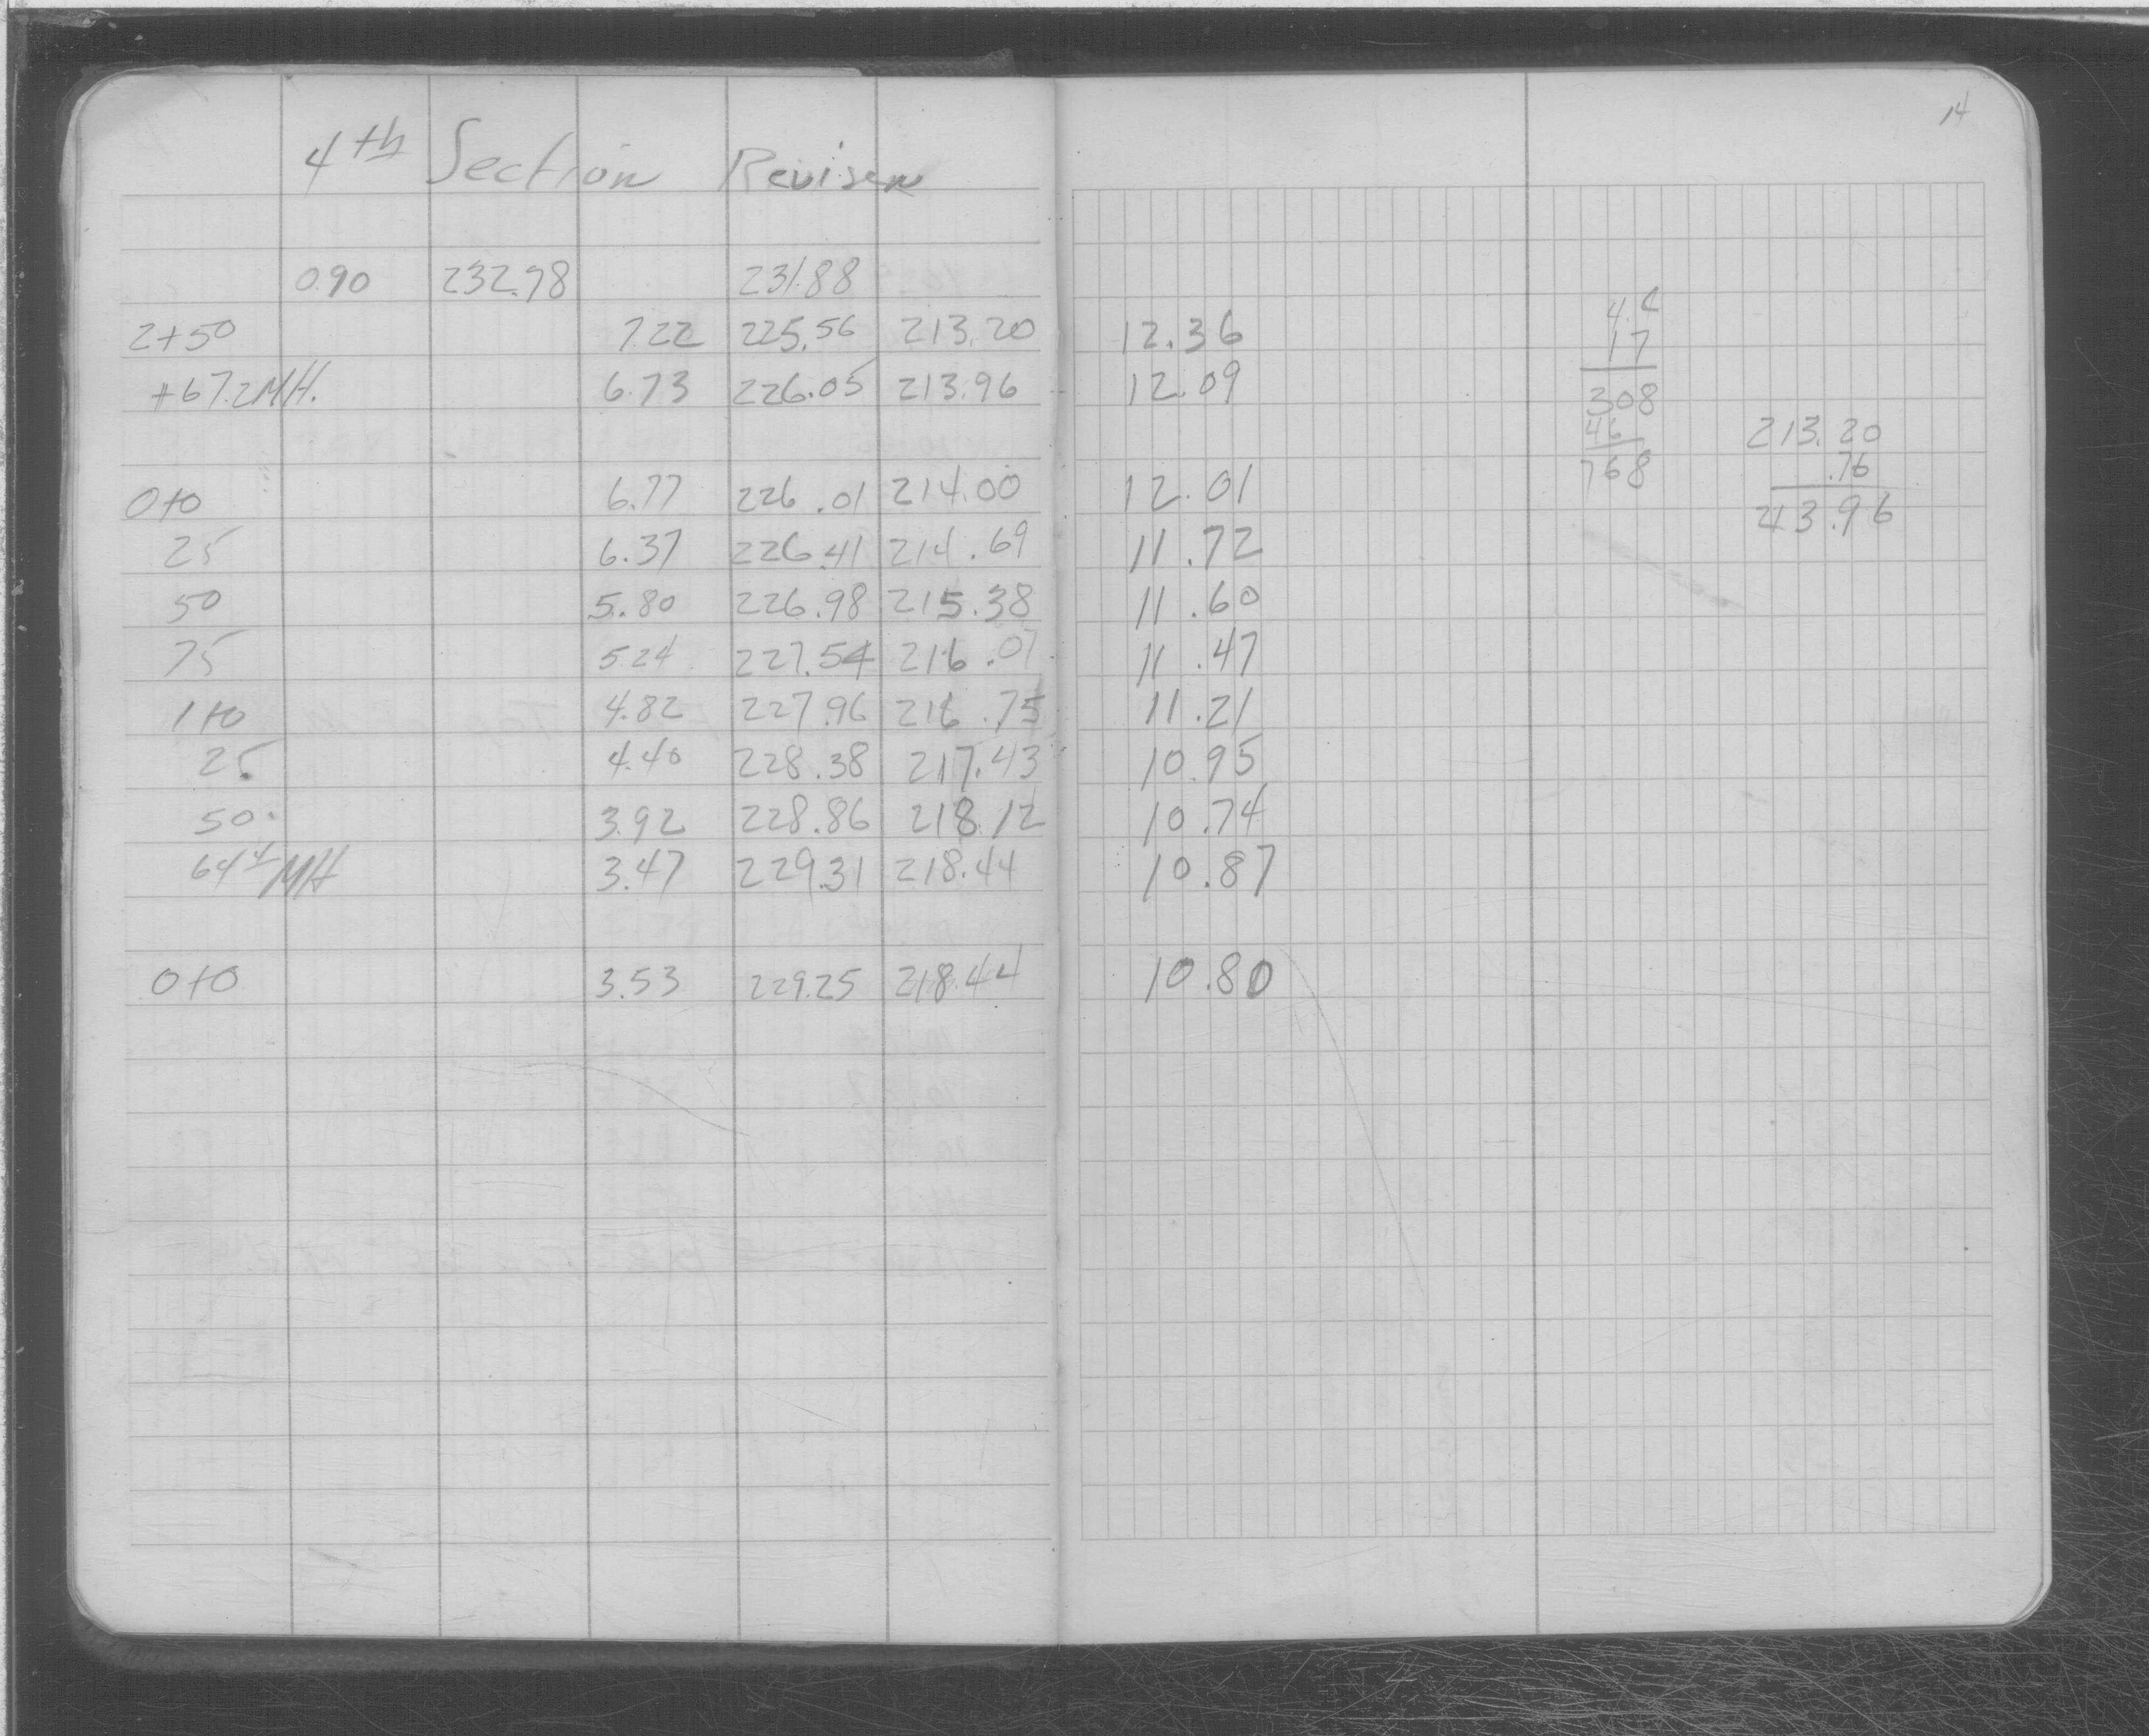 14
4th Section Revisen
0.90 232.78 231.88
2+50 7.22 225.56 213.20 12.36
+67.2 MH. 6.73 226.05 213.96 12.09
0+0 6.77 226.01 214.00 12.01
25 6.37 226.41 214.69 11.72
50 5.80 226.98 215.38 11.60
75 5.24 227.54 216.07 11.47
1+0 4.82 227.96 216.75 11.21
25 4.40 228.38 217.43 10.95
50 3.92 228.86 218.12 10.74
64.4 MH 3.47 229.31 218.44 10.87
0+0 3.53 229.25 218.44 10.80
17
308
46
768
213.20
.76
213.96